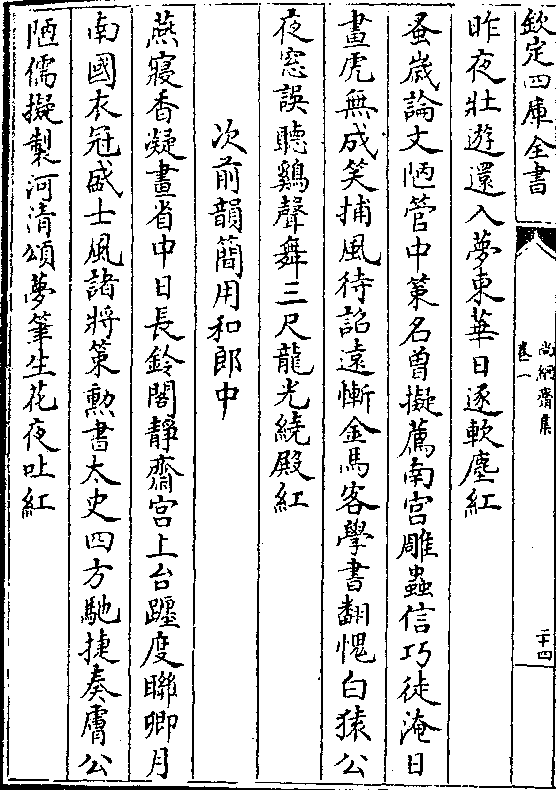 欽定四庫全書
尚絅齋集
卷一
二十四
昨夜壯遊還入夢東華日逐軟塵紅
蚤嵗論文陋管中策名曽擬薦南宫雕蟲信巧徒淹日
畫虎無成笑捕風待詔逺慚金馬客學書翻愧白猿公
夜窓誤聽鷄聲舞三尺龍光繞殿紅
次前韻簡用和郎中
燕寢香凝畫省中日長鈴閣靜齋宫上台躔度聨卿月
南國衣冠盛士風諸將策勲書太史四方馳捷奏膚公
陋儒擬製河清頌夢筆生花夜吐紅